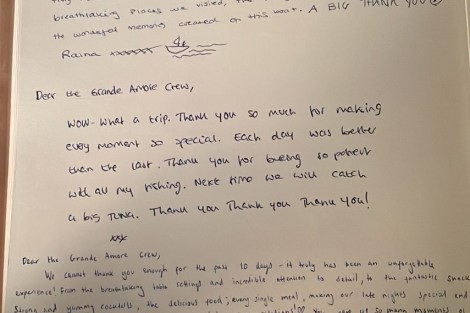 breathtaking places we visited, the
the wonderful memories created on this boat. A BIG THANK YOU
Raina xxxxxxx
Dear the Grande Amore Crew,
WOW - What a trip. Thank you so much for making
every moment so special. Each day was better
than the last. Thank you for being so patient
with all my fishing. Next time we will catch
a big TUNA. Thank you Thank you Thank you!
xxx
Dear the Grande Amore Crew,
We cannot thank you enough for the past 10 days - it truly has been an unforgettable
experience! From the breathtaking table settings and incredible attention to detail, to the fantastic snacks
strong and yummy cocktails, the delicious food; every single meal, making our late nights special and
us so many moments of